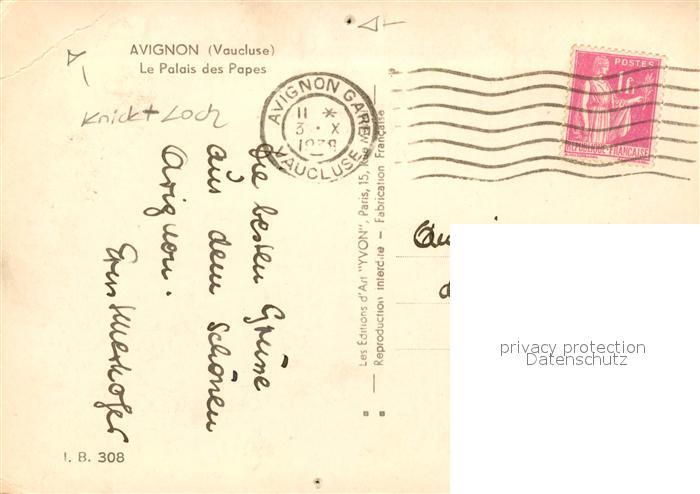 AVIGNON (Vaucluse)
Le Palais des Papes
Knick + Loch
AVIGNON GARE
11 *
3 · X
1938
VAUCLUSE
POSTES
1F
REPUBLIQUE FRANÇAISE
Die besten Grüsse
aus dem schönen
Avignon.
Les Editions d'Art "YVON", Paris, 15, Rue
Reproduction interdite — Fabrication Française
I. B. 308
privacy protection
Datenschutz